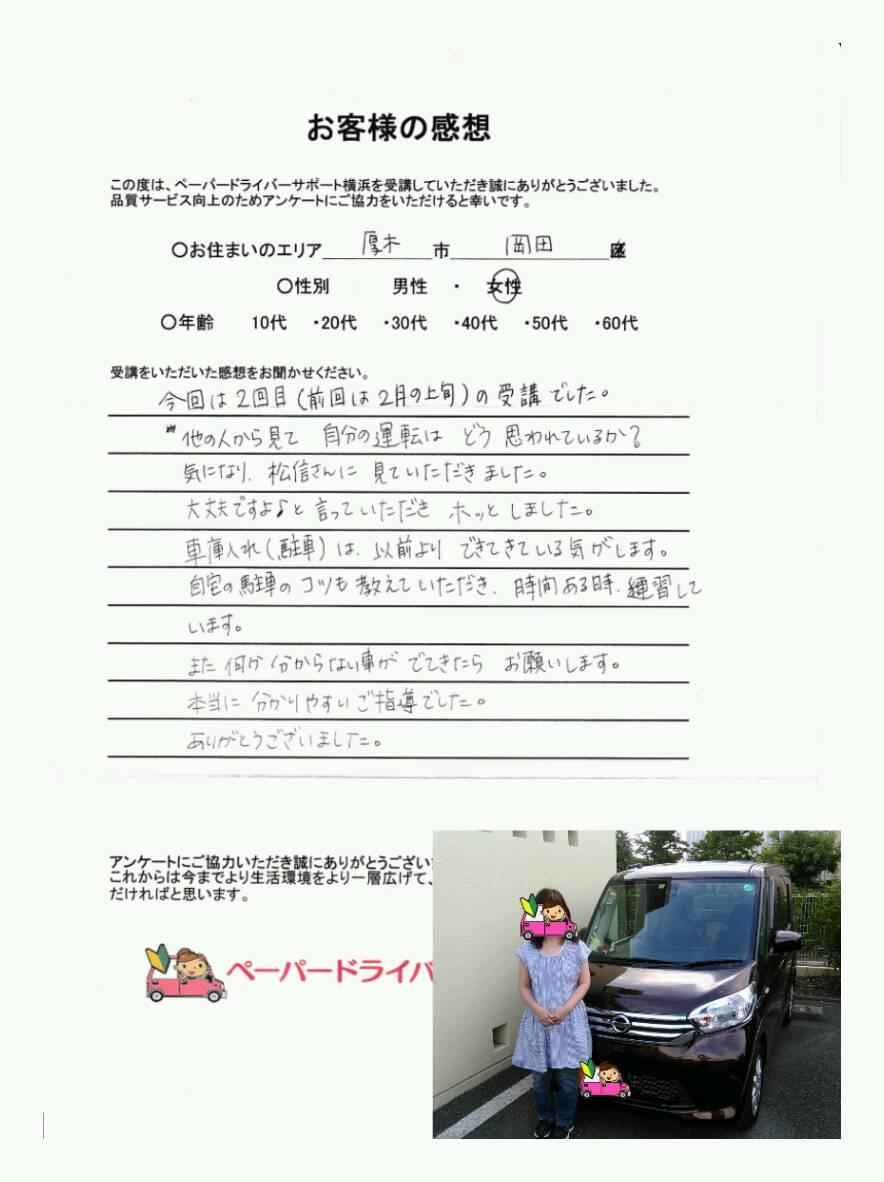 お客様の感想
この度は、ペーパードライバーサポート横浜を受講していただき誠にありがとうございました。
品質サービス向上のためアンケートにご協力をいただけると幸いです。
〇お住まいのエリア 厚木 市 岡田
〇性別 男性 ・ 女性
〇年齢 10代 ・20代 ・30代 ・40代 ・50代 ・60代
受講をいただいた感想をお聞かせください。
今回は2回目(前回は2月の上旬)の受講でした。
他の人から見て 自分の運転は どう 思われているか?
気になり、松信さんに 見ていただきました。
大丈夫ですよ♪と言っていただき ホッとしました。
車庫入れ(駐車)は、以前より できてきている気がします。
自宅の駐車の コツも教えていただき、時間ある時、練習して
います。
また 何か 分からない事が でてきたら お願いします。
本当に 分かりやすい ご指導でした。
ありがとうございました。
アンケートにご協力いただき誠にありがとうござい
これからは今までより生活環境をより一層広げて、
だければと思います。
ペーパードライバ